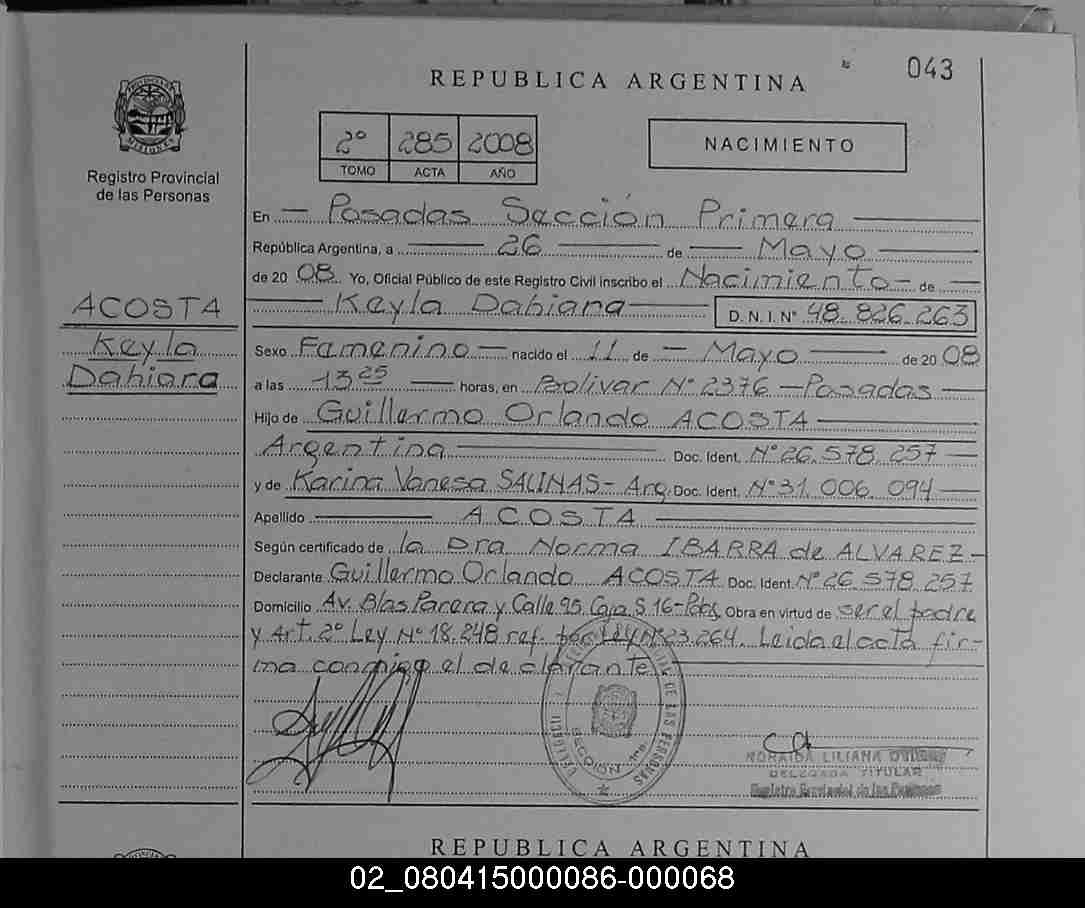 REPUBLICA ARGENTINA
043
PROVINCIA DE MISIONES
Registro Provincial
de las Personas
2º 285 2008
TOMO ACTA AÑO
NACIMIENTO
En Posadas Sección Primera
República Argentina, a 26 de Mayo
de 20 08. Yo, Oficial Público de este Registro Civil inscribo el Nacimiento de
Keyla Dahiara D.N.I.Nº 48.826.263
ACOSTA
Keyla
Dahiara
Sexo Femenino nacido el 11 de Mayo de 20 08
a las 13 25 horas, en Bolivar Nº 2376 - Posadas
Hijo de Guillermo Orlando ACOSTA
Argentina Doc. Ident. Nº 26.578.257
y de Karina Vanesa SALINAS - Arg. Doc. Ident. Nº 31.006.094
Apellido ACOSTA
Según certificado de la Dra Norma IBARRA de ALVAREZ -
Declarante Guillermo Orlando ACOSTA Doc. Ident. Nº 26.578.257
Domicilio Av. Blas Parera y Calle 95 Casa S. 16 - Pdas, Obra en virtud de ser el padre
y Art. 2º Ley Nº 18.248 ref. por Ley Nº 23.264. Leida el acta fir-
ma conmigo el declarante.
DE LAS PERSONAS
SECCIÓN 1ra
NORAIDA LILIANA
DELEGADA TITULAR
Registro Provincial de las Personas
REPUBLICA ARGENTINA
02_080415000086-000068